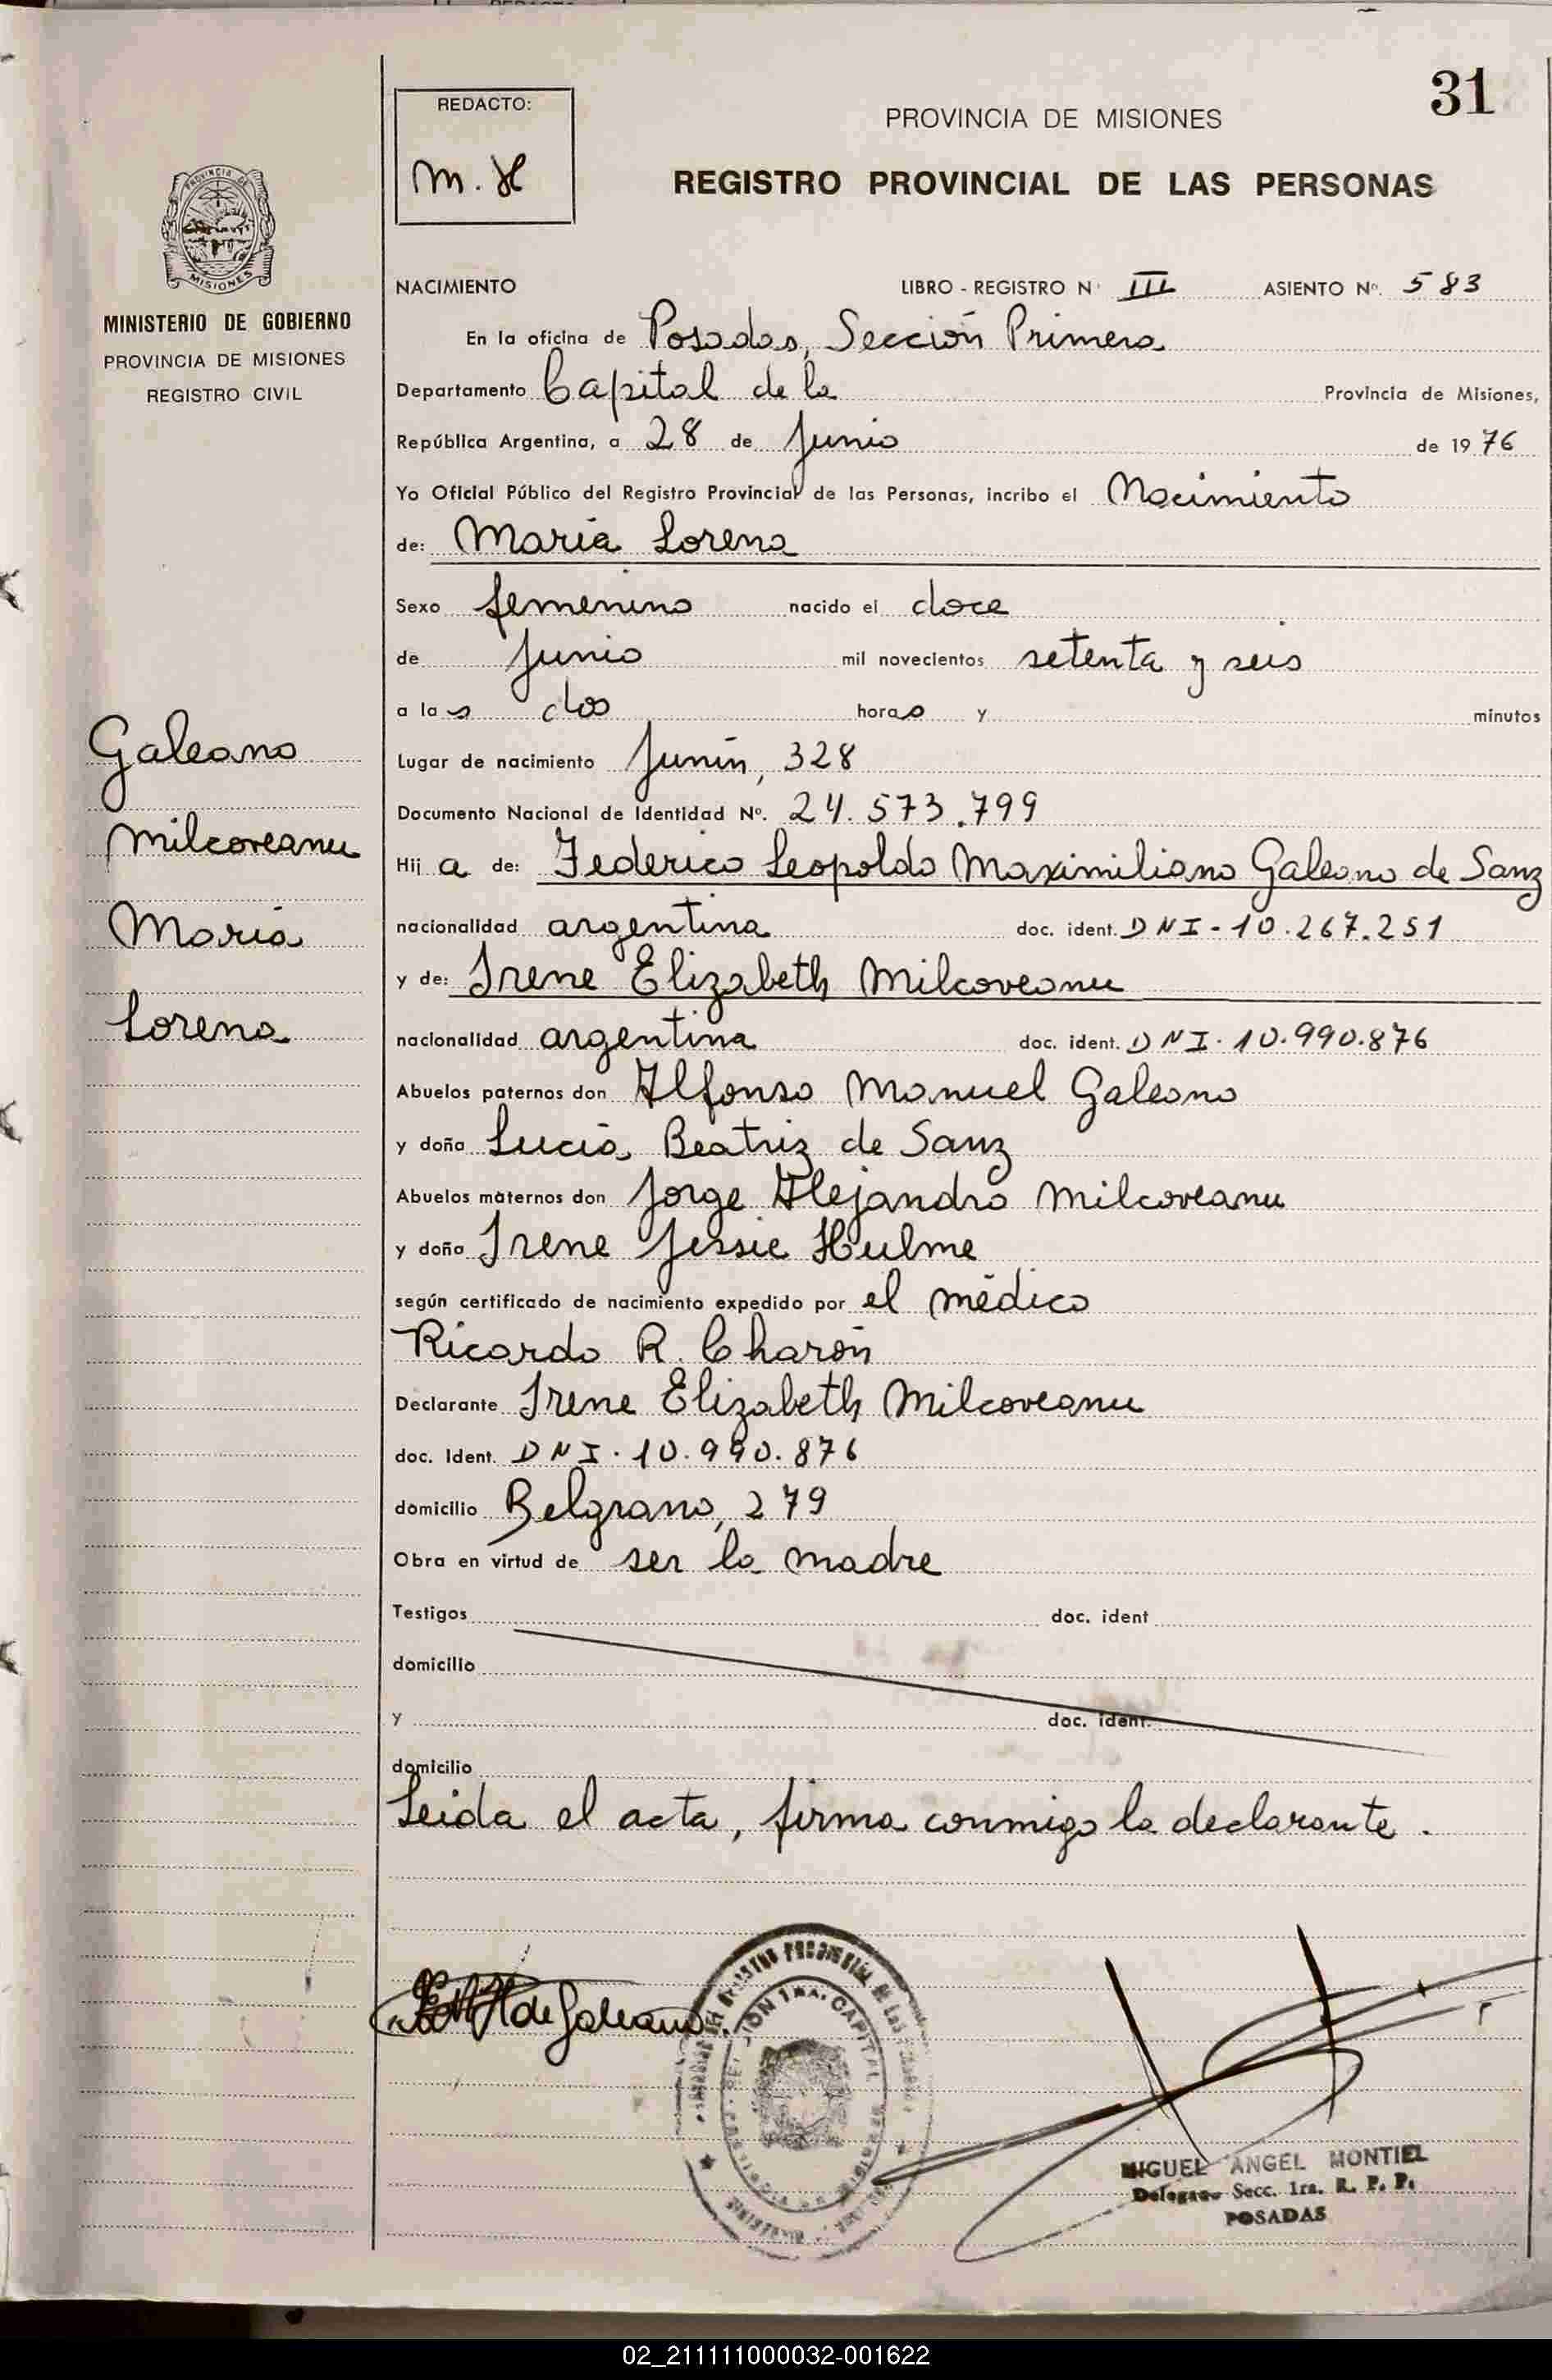 31
REDACTO:
PROVINCIA DE MISIONES
M. H
REGISTRO PROVINCIAL DE LAS PERSONAS
PROVINCIA DE
MISIONES
MINISTERIO DE GOBIERNO
PROVINCIA DE MISIONES
REGISTRO CIVIL
NACIMIENTO LIBRO - REGISTRO Nº III ASIENTO Nº. 583
En la oficina de Posadas, Sección Primera
Departamento Capital de la Provincia de Misiones,
República Argentina, a 28 de Junio de 1976
Yo Oficial Público del Registro Provincial de las Personas, incribo el Nacimiento
de: María Lorena
Sexo femenino nacido el doce
de Junio mil novecientos setenta y seis
a las dos horas y minutos
Lugar de nacimiento Junín, 328
Documento Nacional de Identidad Nº. 24.573.799
Hija de: Federico Leopoldo Maximiliano Galeano de Sanz
nacionalidad argentina doc. ident. DNI-10.267.251
y de: Irene Elizabeth Milcoveanu
nacionalidad argentina doc. ident. DNI.10.990.876
Abuelos paternos don Alfonso Manuel Galeano
y doña Lucía Beatriz de Sanz
Abuelos maternos don Jorge Alejandro Milcoveanu
y doña Irene Jessie Hulme
según certificado de nacimiento expedido por el médico
Ricardo R. Charón
Declarante Irene Elizabeth Milcoveanu
doc. Ident. DNI.10.990.876
domicilio Belgrano, 279
Obra en virtud de ser la madre
Testigos doc. ident
domicilio
y doc. ident.
domicilio
Leida el acta, firma conmigo la declarante.
Galeano
Milcoveanu
María
Lorena
de Galeano
CAPITAL
MIGUEL ANGEL MONTIEL
Delegado Secc. 1ra. R. P. P.
POSADAS
02_211111000032-001622